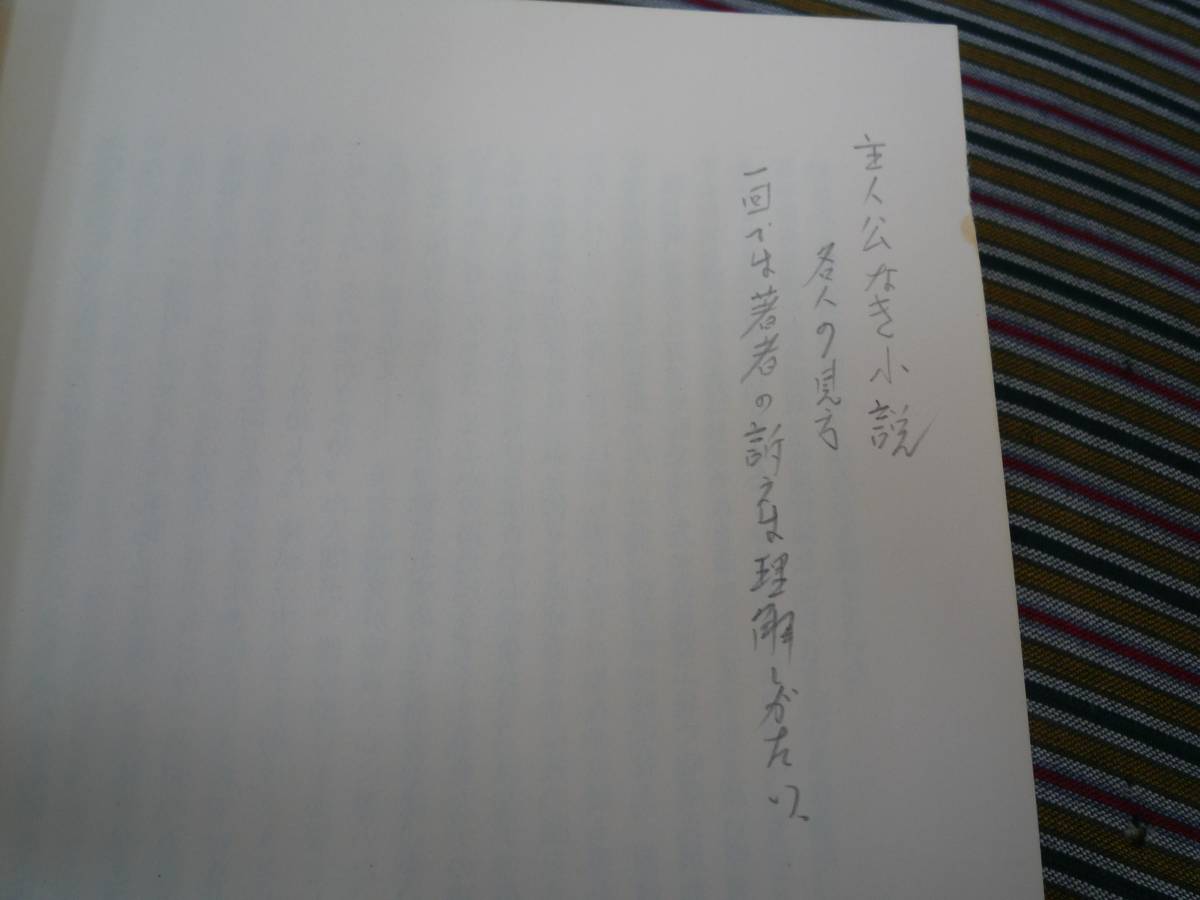 主人公なき小説
各人の見方
一回では著者の訴えは理解しがたい、